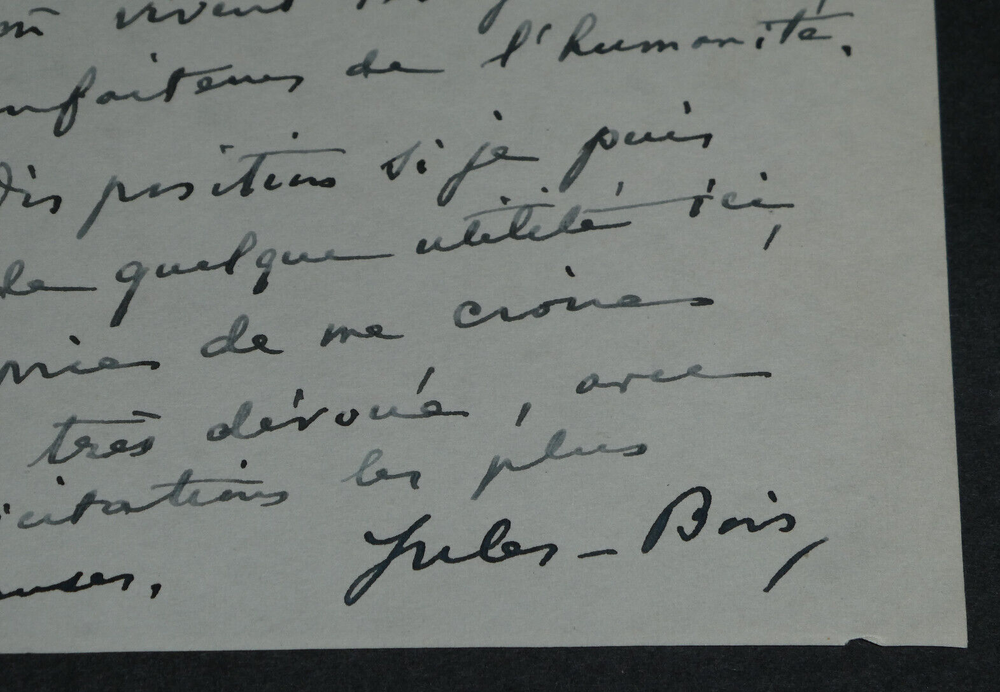 vivent
nfaiteurs de l'humanité.
Disposition si je puis
de quelque utilité ici,
prier de me croire
très dévoué, avec
icitations les plus
euses. Jules-Bois